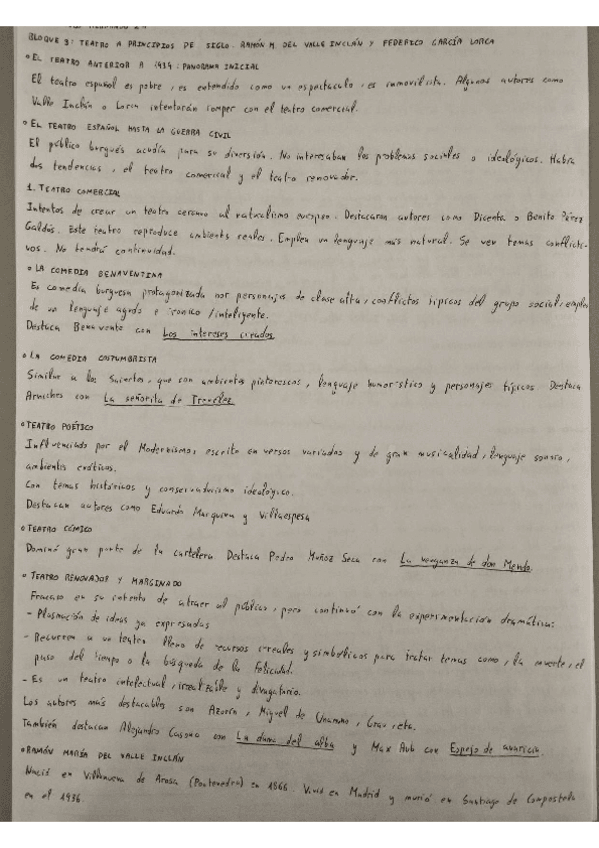 BLOQUE 9: TEATRO A PRINCIPIOS DE SIGLO. RAMÓN M. DEL VALLE INCLÁN Y FEDERICO GARCÍA LORCA
° EL TEATRO ANTERIOR A 1939: PANORAMA INICIAL
El teatro español es pobre, es entendido como un espectaculo, es inmovilista. Algunos autores como
Valle Inclán o Lorca intentarán romper con el teatro comercial.
° EL TEATRO ESPAÑOL HASTA LA GUERRA CIVIL
El público burgués acudía para su diversión. No interesaban los problemas sociales o ideológicos. Habra
dos tendencias, el teatro comercial y el teatro renovador.
1. TEATRO COMERCIAL
Intentos de crear un teatro cercano al naturalismo europeo. Destacaron autores como Dicenta o Benito Pérez
Galdós. Este teatro reproduce ambients reales. Emplea un lenguaje más natural. Se ven temas conflicti-
vos. No tendrá continuidad.
° LA COMEDIA BENAVENTINA
Es comedia burguesa protagonizada por personajes de clase alta, conflictos típicos del grupo social, empleo
de un lenguaje agudo e ironico / inteligente.
Destaca Benavente con Los intereses creados
° LA COMEDIA COSTUMBRISTA
Similar a los Sainetes, que son ambientes pintorescos, lenguaje humorístico y personajes típicos Destaca
Arniches con La señorita de Trevélez
° TEATRO POÉTICO
Influenciado por el Modernismo, escrito en versos variados y de gran musicalidad, lenguaje sonoro,
ambientes exóticos.
Con temas históricos y conservadurismo ideológico.
Destacan autores como Eduardo Marquina y Villaespesa
° TEATRO CÓMICO
Dominó gran parte de la cartelera Destaca Pedro Muñoz Seca con La venganza de don Mendo
° TEATRO RENOVADOR Y MARGINADO
Fracaso en su intento de atraer al público, pero continuó con la experimentación dramática:
- Plasmación de ideas ya expresadas
- Recurren a un teatro lleno de recursos irreales y simbólicos para tratar temas como, la muerte, el
paso del tiempo o la búsqueda de la felicidad.
- Es un teatro intelectual, irrealizable y divagatorio.
Los autores más destacables son Azorín, Miguel de Unamuno, Grau, etc.
También destacan Alejandro Casona con La dama del alba y Max Aub con Espejo de avaricia.
° RAMÓN MARÍA DEL VALLE INCLÁN
Nació en Villanueva de Arosa (Pontevedra) en 1866. Vivió en Madrid y murió en Santiago de Compostela
en el 1936.